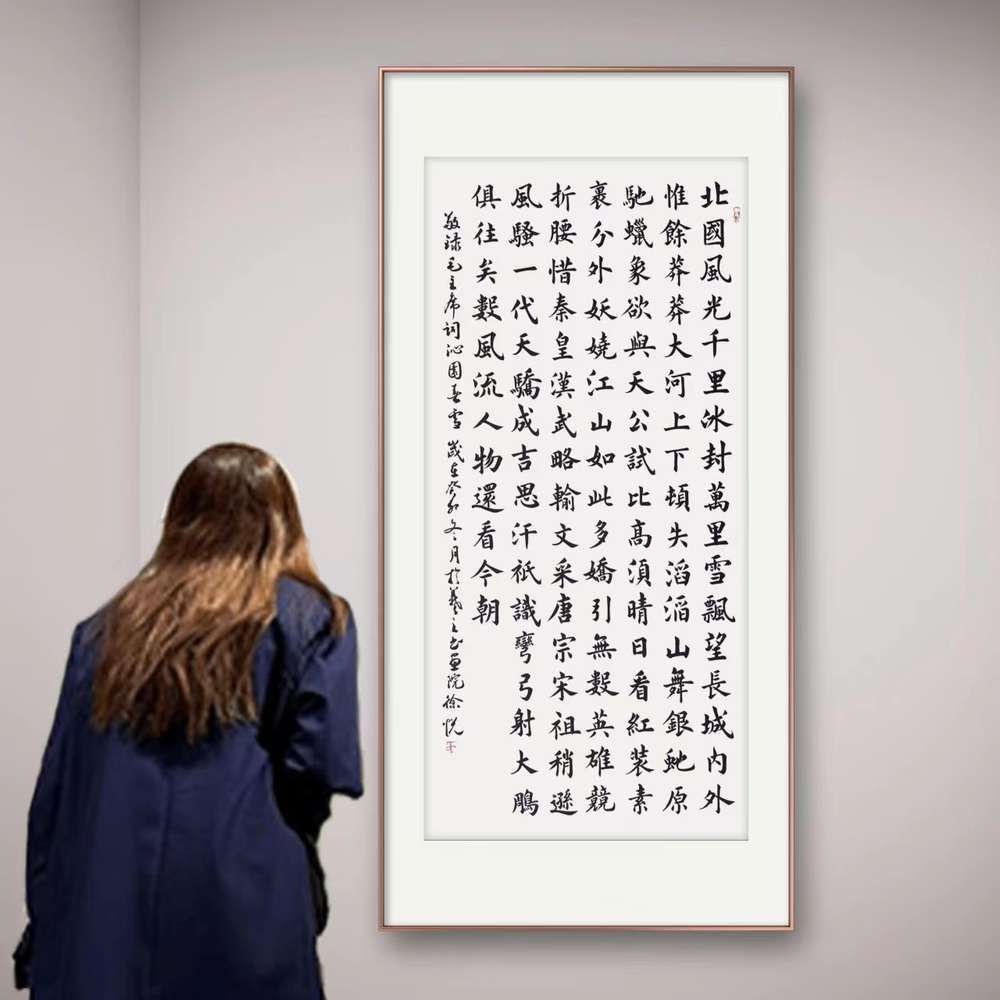 北國風光千里冰封萬里雪飄望長城内外
惟餘莽莽大河上下頓失滔滔山舞銀虵原
馳蠟象欲與天公試比高須晴日看紅装素
裹分外妖嬈江山如此多嬌引無數英雄競
折腰惜秦皇漢武略輸文采唐宗宋祖稍遜
風騷一代天驕成吉思汗祇識彎弓射大鵰
俱往矣數風流人物還看今朝
敬録毛主席詞沁園春雪 歲在癸卯冬月於羲之书画院徐悦